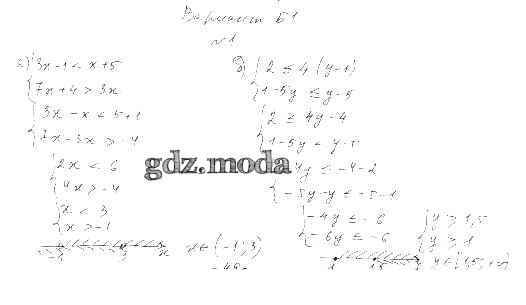 Вариант Б1
№1
а) 3x-1 < x+5
7x+4 > 3x
3x - x < 5+1
7x-3x > -4
2x < 6
4x > -4
x < 3
x > -1
-1 3 x
x ∈ (-1; 3)
б) 2 ≤ 4 (y-1)
1-5y ≤ y-5
2 ≤ 4y-4
-5y-y ≤ -5-1
-6y ≤ -6
y ≥ 1,5
y ≥ 1
1 1,5
y ∈ [1,5; +∞)
gdz.moda